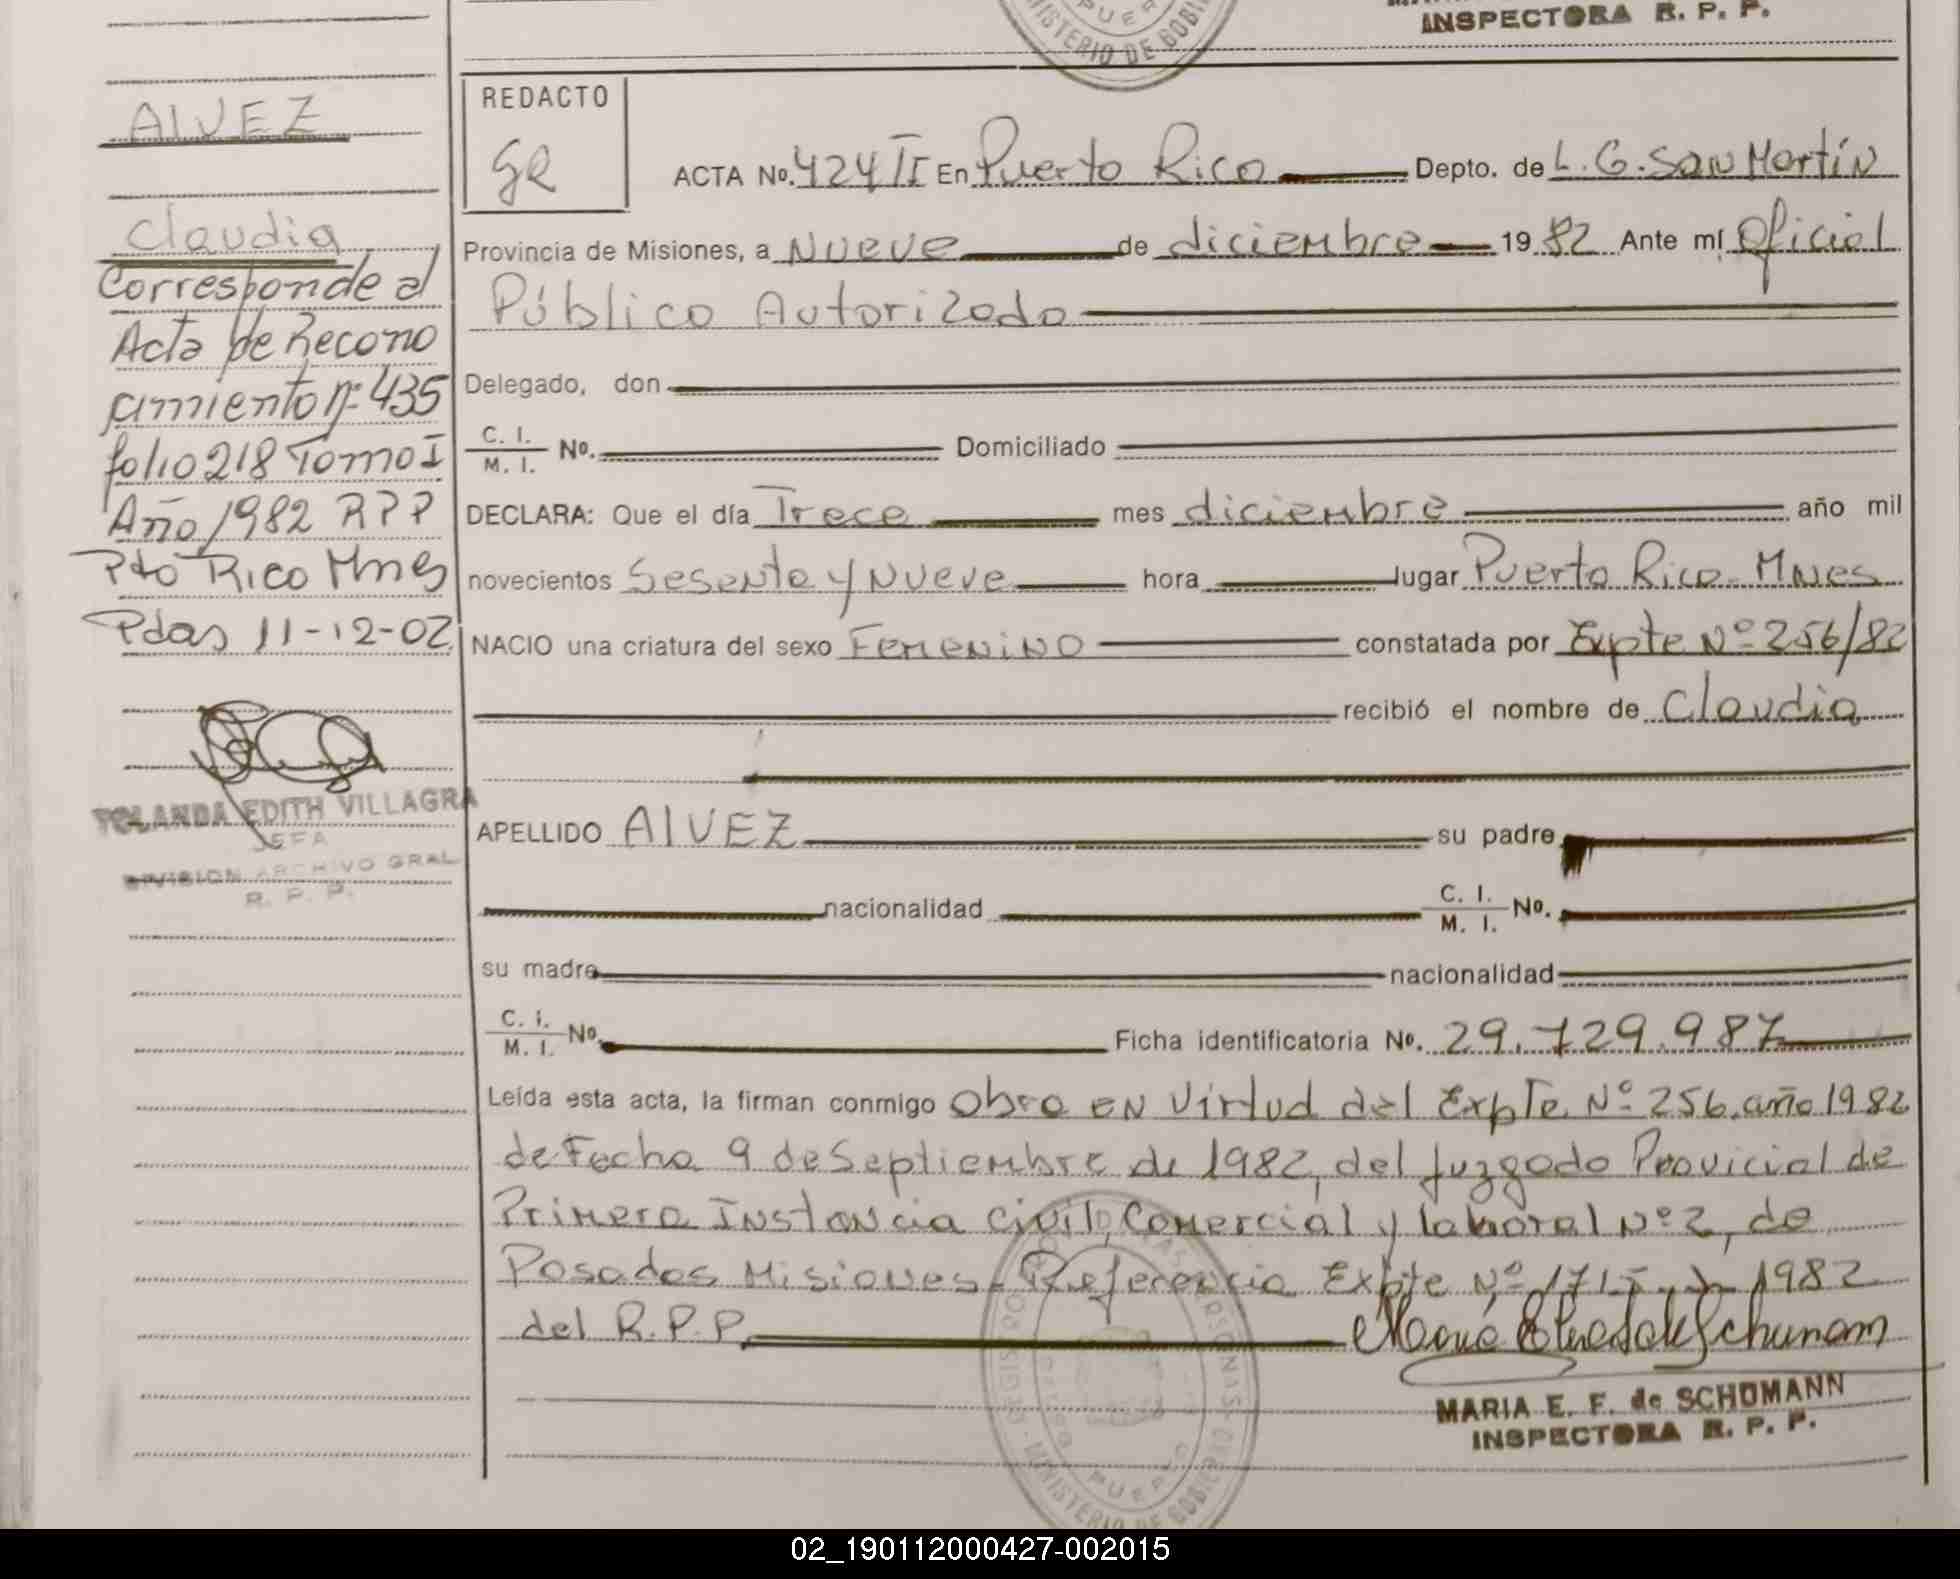 INSPECTORA R. P. P.
MINISTERIO DE GOBI
PUER
ALVEZ
Claudia
Corresponde al
Acta de Recono
cimiento nº 435
folio 218 Tomo I
Año 1982 RPP
Pto Rico Mnes
Pdas 11-12-02
YOLANDA EDITH VILLAGRA
JEFA
DIVISION ARCHIVO GRAL
R. P. P.
REDACTO
ACTA No. 424 TI En Puerto Rico Depto. de L. G. San Martín
Provincia de Misiones, a Nueve de diciembre 1982 Ante mí Oficial
Público Autorizado
Delegado, don
C. I. / M. I. No. Domiciliado
DECLARA: Que el día Trece mes diciembre año mil
novecientos Sesenta y Nueve hora lugar Puerto Rico-Mnes
NACIO una criatura del sexo Femenino constatada por Expte Nº 256/82
recibió el nombre de Claudia
APELLIDO ALVEZ su padre
nacionalidad C. I. / M. I. No.
su madre nacionalidad
C. I. / M. I. No. Ficha identificatoria No. 29.729.987
Leída esta acta, la firman conmigo Obra en virtud del Expte. Nº 256. año 1982
de Fecha 9 de Septiembre de 1982, del Juzgado Provicial de
Primera Instancia Civil, Comercial y laboral Nº 2, de
Posadas Misiones- Referencia Expte Nº 1982
del R.P.P.
MARIA E. F. de SCHUMANN
INSPECTORA R. P. P.
MINISTERIO DE GOBIERNO
PUERTO
02_190112000427-002015